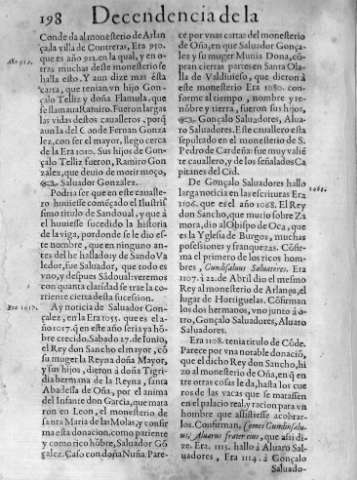 198 Decendencia de la
Conde da al monesterio de Arlan
çala villa de Contreras, Era 950.
que es año 912. en la qual, y en o-
tras muchas deste monesterio se
halla esto. Y aun dize mas esta
carta, que tenian vn hijo Gon-
çalo Telliz y doña Flamula, que
se llamaua Ramiro. Fueron largas
las vidas destos caualleros, porq̃
aun la del Conde Fernan Gonza
lez, con ser el mayor, llego cerca
de la Era 1010. Sus hijos de Gon-
çalo Telliz fueron, Ramiro Gon-
zalez, que deuio de morir moço,
Saluador Gonzalez.
Podria ser que en este caualle-
ro huuiesse começado el Ilustris-
simo titulo de Sandoual, y que à
el huuiesse sucedido la historia
de la viga, por donde se le dio es-
te nombre, que en ninguno an-
tes del he hallado y de Sando Va
lledor, fue Saluador, que todo es
vno, y despues Sãdoual: veremos
con quanta claridad se trae la co-
rriente cierta desta sucesion.
Era 1017.
Ay noticia de Saluador Gon-
çalez, en la Era 1055. que es el a-
ño 1017. q̃ en este año seria ya hõ-
bre crecido. Sabado 27. de Iunio,
el Rey don Sancho el mayor, cõ
su muger la Reyna doña Mayor,
y sus hijos, dieron à doña Tigri-
dia hermana de la Reyna, santa
Abadessa de Oña, por el anima
del Infante don Garcia, que mata
ron en Leon, el monesterio de
santa Maria de las Molas, y confir
ma esta donacion, como pariente
y como rico hõbre, Saluador Gõ
galez. Caso con doña Nuña. Pare-
ce por vnas cartas del monesterio
de Oña, en que Saluador Gonça-
lez y su muger Munia Dona, cõ-
pran ciertas partes en Santa Ola-
lla de Valdiuieso, que dieron à
este monesterio Era 1080. con-
forme al tiempo, nombre y re-
nõbre y tierra, fueron sus hijos,
Gonçalo Saluadores, Alua-
ro Saluadores. Este cauallero esta
sepultado en el monesterio de S.
Pedro de Cardeña: fue muy valiẽ
te cauallero, y de los señalados Ca
pitanes del Cid.
De Gonçalo Saluadores hallo
larga noticia en las escrituras Era
1106. que es el año 1068. El Rey
don Sancho, que murio sobre Za
mora, dio al Obispo de Oca, que
es la Yglesia de Burgos, muchas
possessiones y franquezas. Cõfir-
ma el primero de los ricos hom-
bres, Gundisaluus Saluatores. Era
1107. à 22. de Abril dio el mesmo
Rey al monesterio de Arlança, el
lugar de Hortiguelas. Cõfirman
los dos hermanos, vno junto à o-
tro, Gonçalo Saluadores, Aluaro
Saluadores.
Era 1108. tenia titulo de Cõde.
Parece por vna notable donació,
que el dicho Rey don Sancho, hi
zo al monesterio de Oña, en q̃ en
tre otras cosas le da, hasta los cue
ros de las vacas que se matassen
en el palacio real, y racion para vn
hombre que assistiesse acobrar-
los. Confirman, Comes Gundisalu-
us, Aluarus frater eius, que asi di-
ze. Era. 1113. hallo à Aluaro Sal-
uadores, Era 1114. à Gonçalo
Saluado-